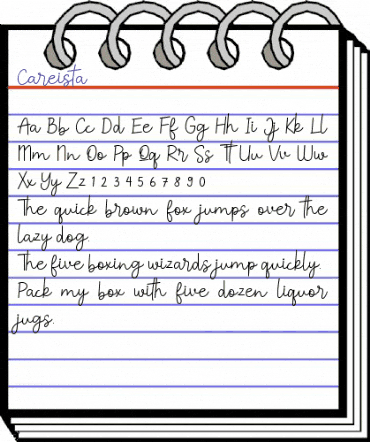 Careista
Aa Bb Cc Dd Ee Ff Gg Hh Ii Jj Kk Ll
Mm Nn Oo Pp Qq Rr Ss Tt Uu Vv Ww
Xx Yy Zz 1 2 3 4 5 6 7 8 9 0
The quick brown fox jumps over the
lazy dog.
The five boxing wizards jump quickly.
Pack my box with five dozen liquor
jugs.